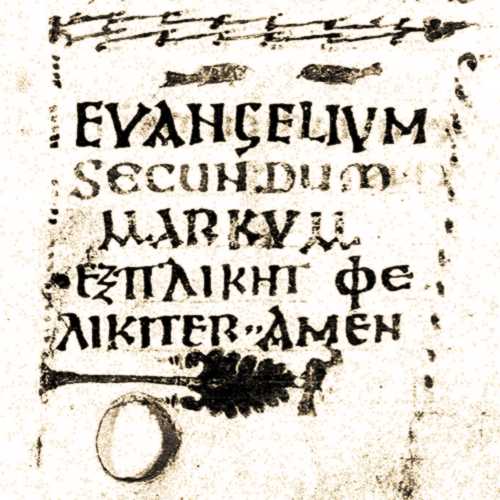 EVANGELIVM
SECUNDUM
MARKVM
ΕΞΠΛΙΚΗΤ ΦΕ
ΛΙΚΙTER·· AMEN